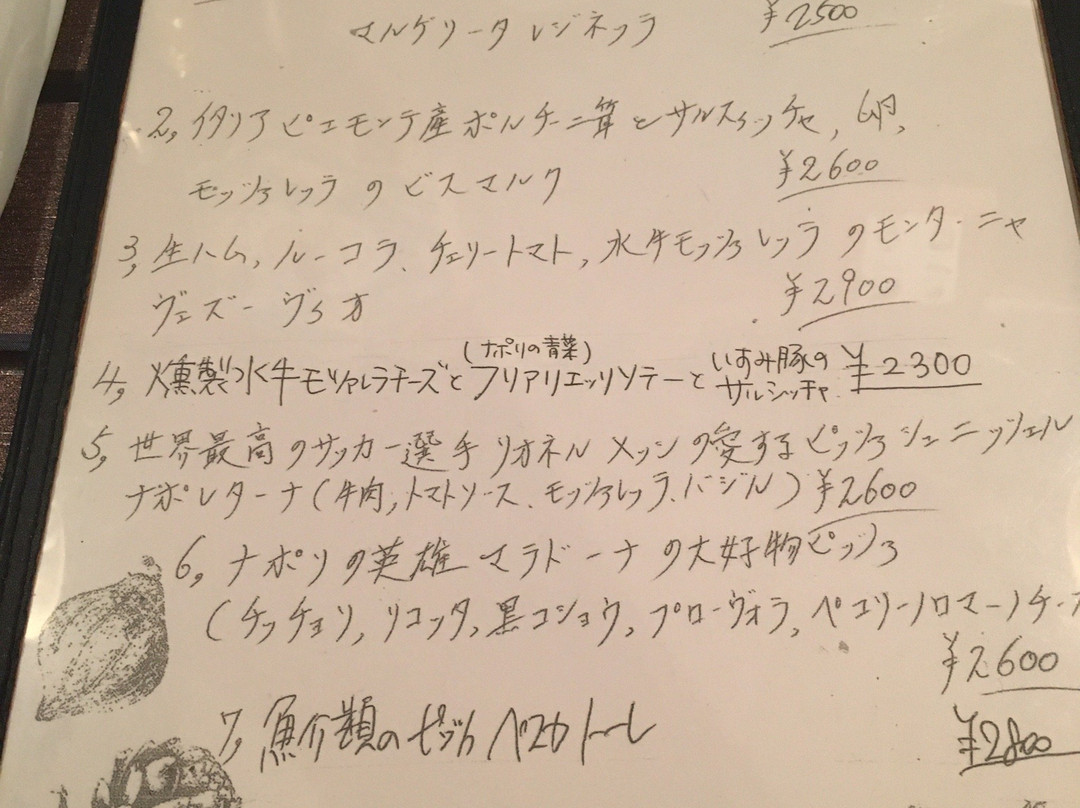 マルゲリータ レジネッラ ¥2500
2, イタリア ピエモンテ産 ポルチーニ茸とサルスィッチャ, 卵,
モッツァレッラ の ビスマルク ¥2600
3, 生ハム, ルーコラ、チェリートマト, 水牛モッツァレッラ のモンターニャ
ヴェズーヴィオ ¥2900
(ナポリの青菜)
4, 燻製水牛モツァレラチーズとフリアリエッリソテーと いすみ豚の サルシッチャ ¥2300
5, 世界最高のサッカー選手 リオネル メッシの愛するピッツァ シュニッツェル
ナポレターナ (牛肉, トマトソース、モッツァレッラ、バジル) ¥2600
6, ナポリの英雄 マラドーナ の大好物ピッツァ
(チッチョリ, リコッタ, 黒コショウ, プローヴォラ, ペコリーノロマーノチーズ
¥2600
7, 魚介類のピッツァ ペスカトーレ ¥2800